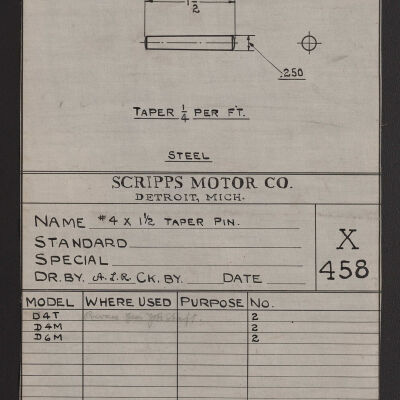 1 1/2
.250
TAPER 1/4 PER FT.
STEEL
SCRIPPS MOTOR CO.
DETROIT, MICH.
NAME #4 X 1 1/2 TAPER PIN.
STANDARD
SPECIAL
DR. BY. A.L.R. CK. BY. DATE
X 458
MODEL WHERE USED PURPOSE NO.
D4T 2
D4M 2
D6M 2